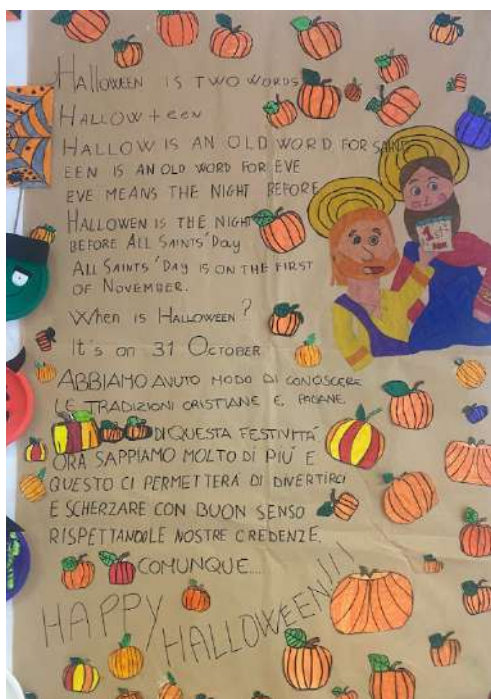 HALLOWEEN IS TWO WORDS
HALLOW + EEN
HALLOW IS AN OLD WORD FOR SAINT
EEN IS AN OLD WORD FOR EVE
EVE MEANS THE NIGHT BEFORE
HALLOWEN IS THE NIGHT
BEFORE ALL SAINTS' DAY
ALL SAINTS' DAY IS ON THE FIRST
OF NOVEMBER.
When is HALLOWEEN?
It's on 31 OCTOBER
ABBIAMO AVUTO MODO DI CONOSCERE
LE TRADIZIONI CRISTIANE E PAGANE
DI QUESTA FESTIVITÁ
ORA SAPPIAMO MOLTO DI PIÙ E
QUESTO CI PERMETTERÁ DI DIVERTIRCI
E SCHERZARE CON BUON SENSO
RISPETTANDOLE NOSTRE CREDENZE.
COMUNQUE...
HAPPY HALLOWEEN!!!